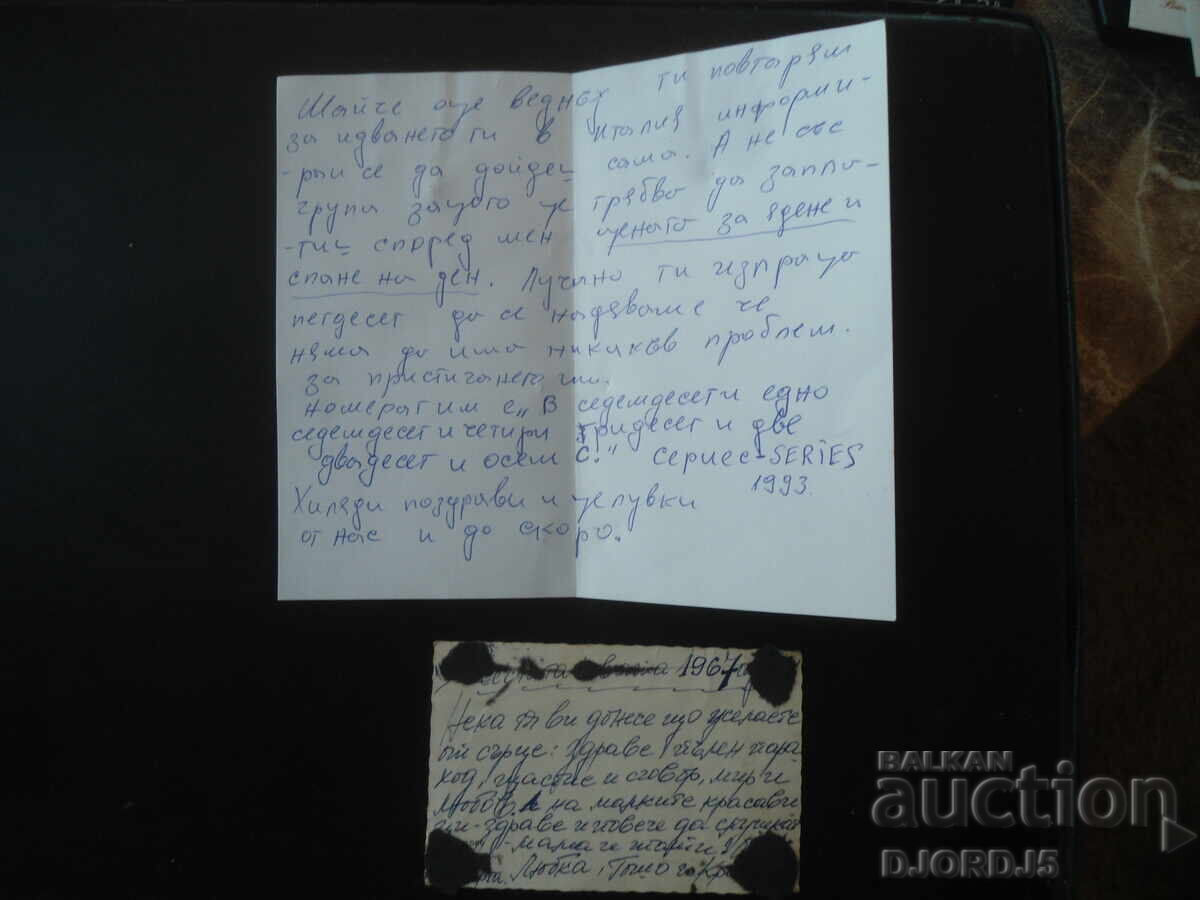 Майче още веднъж ти повтарям
за идването ти в Италия информи-
-рай се да дойдеш сама. А не със
група защото ще трябва да запла-
-тиш според мен цената за ядене и
спане на ден. Лучано ти изпраща
петдесет да се надяваме че
няма да има никакъв проблем.
за пристигането им.
номерът им е „В седемдесет и едно
седемдесет и четири тридесет и две
двадесет и осем С." Сериес-SERIES
1993.
Хиляди поздрави и целувки
от нас и до скоро.
1967
Нека тя ви донесе що желаете
от сърце: здраве, пълен
щастие и сговор, мир и
любов, на малките красавци
здраве и повече да слушкат
мама и татко
Любка, Тошо
BALKAN
auction
DJORDJ5